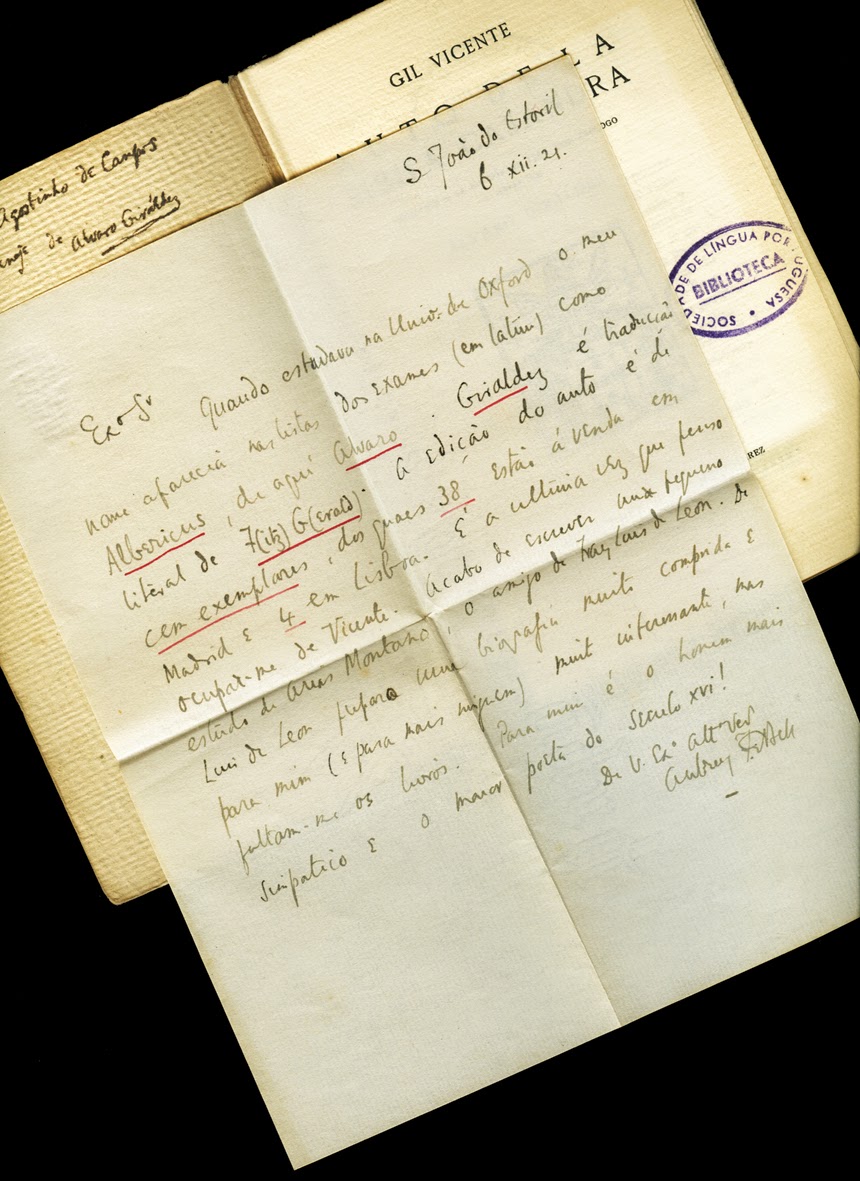 GIL VICENTE
AUTO DE LA
RA
OGO
REZ
Agostinho de Campos
de Alvaro Giráldez
SOCIEDADE DE LÍNGUA PORTUGUESA
BIBLIOTECA
S João do Estoril
6 xii. 21.
Exo Sr Quando estudava na Univ. de Oxford o meu
nome aparecia nas listas dos exames (em latim) como
Albericus, de aqui Alvaro. Giraldez é tradução
literal de F(itz) G(erald). A edição do auto é de
cem exemplares, dos quaes 38 estão á venda em
Madrid e 4 em Lisboa. É a ultima vez que penso
ocupar-me de Vicente. Acabo de escrever um pequeno
estudo de Arias Montano, o amigo de Fray Luis de Leon. De
Luis de Leon preparo uma biografia muito comprida e
para mim (e para mais ninguem) muit interessante, mas
faltam-me os livros. Para mim é o homem mais
simpatico e o maior poeta do seculo xvi!
De V. Exa attº ver
Aubrey F.G.Bell